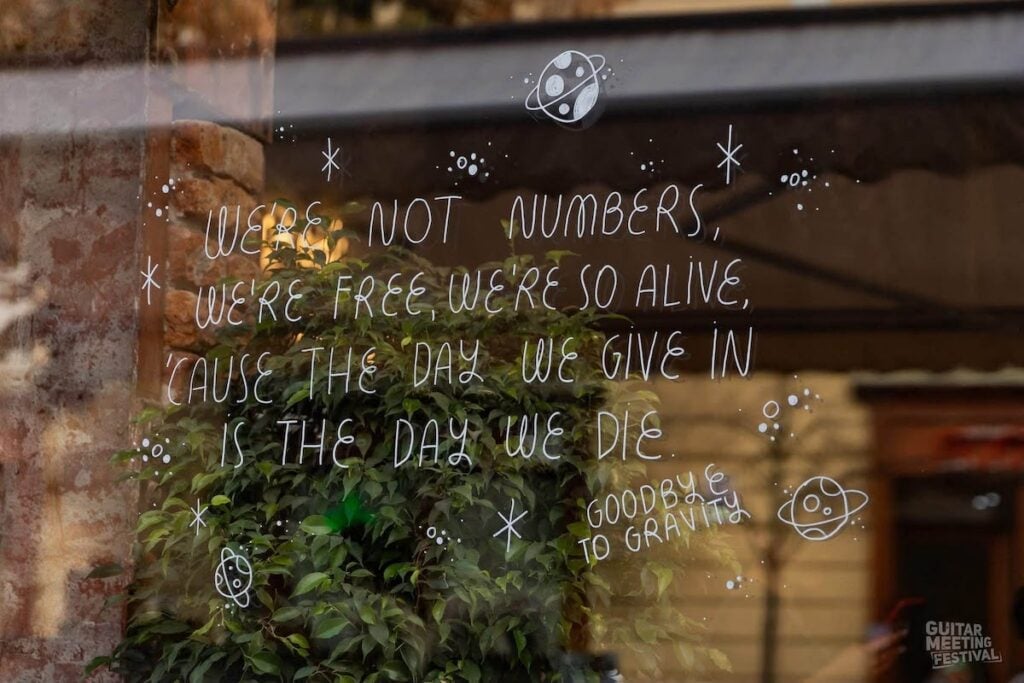 WE'RE NOT NUMBERS,
WE'RE FREE, WE'RE SO ALIVE,
'CAUSE THE DAY WE GIVE IN
IS THE DAY WE DIE.
GOODBYE
TO GRAVITY
GUITAR
MEETING
FESTIVAL